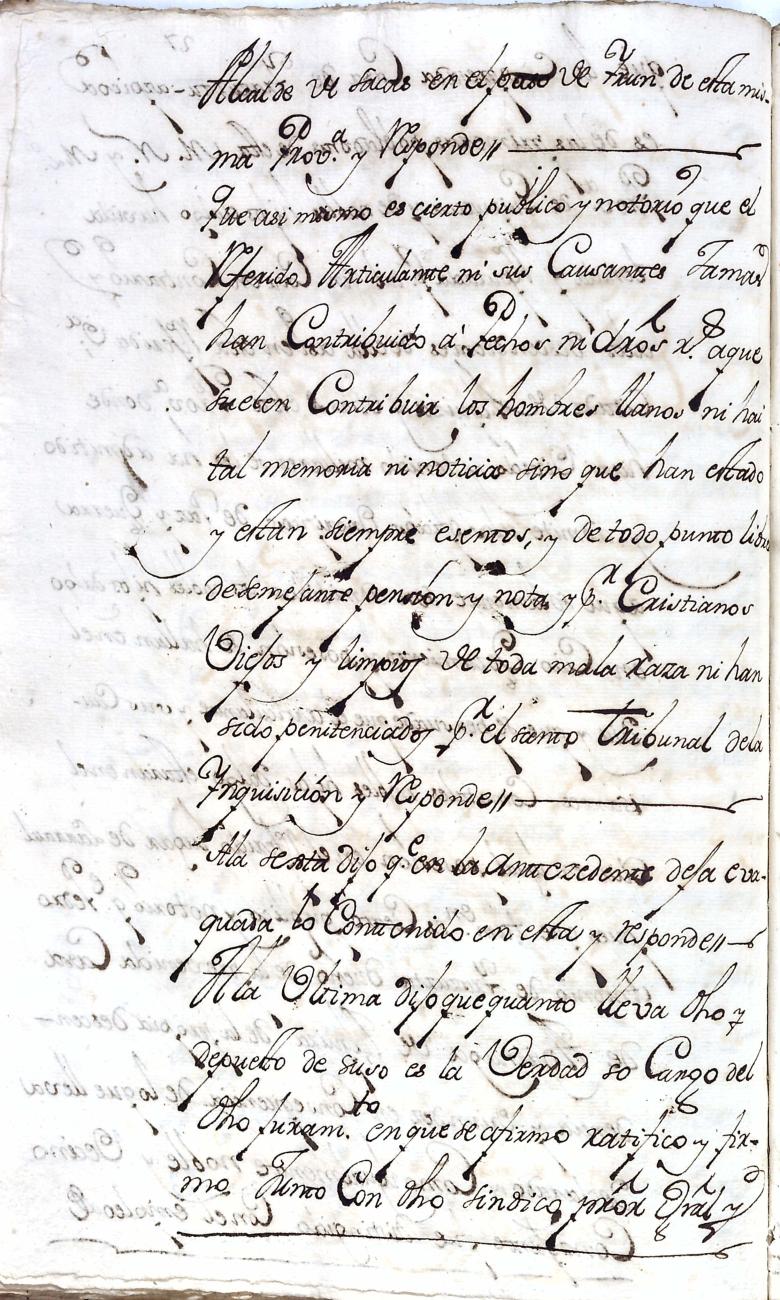 Alcalde de sacas en el paso de Yrun de esta mis-
ma Prov.ª y Responde//
que asi mismo es cierto publico y notorio que el
Referido Articulante ni sus Causantes Jamas
han Contribuido á Pechos ni dros R.s aque
suelen Contribuir los hombres llanos ni hai
tal memoria ni noticia sino que han estado
y estan siempre esentos, y de todo punto libres
de semejante pension y nota y p.r Cristianos
Viejos y limpios de toda mala raza ni han
sido penitenciados p.r el santo Tribunal dela
Ynquisición y Responde//
Ala sesta dijo q.e en la antezedente deja eva-
quada lo Contenido en esta y responde//
Ala Ultima dijo que quanto lleva dho y
depuesto de suso es la Verdad so Cargo del
dho juram.to en que se afirmo ratifico y fir-
mo Junto Con dho sindico prór Grâl y